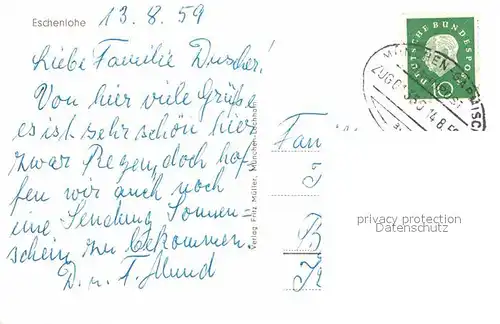 Eschenlohe
13.8.59
Liebe Familie Duscher!
Von hier viele Grüße
es ist sehr schön hier
zwar Regen, doch hof-
fen wir auch noch
eine Sendung Sonnen-
schein zu bekommen.
D. u. F. Mund
Verlag Fritz Müller, München-Lochham
DEUTSCHE BUNDESPOST
10
MÜNCHEN-GARMISCH
14.8.
Fam
privacy protection
Datenschutz